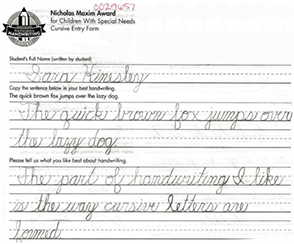 0029657
Nicholas Maxim Award
for Children With Special Needs
Cursive Entry Form
HANDWRITING
Student's Full Name (written by student)
Sara Hinesley
Copy the sentence below in your best handwriting.
The quick brown fox jumps over the lazy dog.
The quick brown fox jumps over
the lazy dog.
Please tell us what you like best about handwriting.
The part of handwriting I like
is the way cursive letters are
formed.